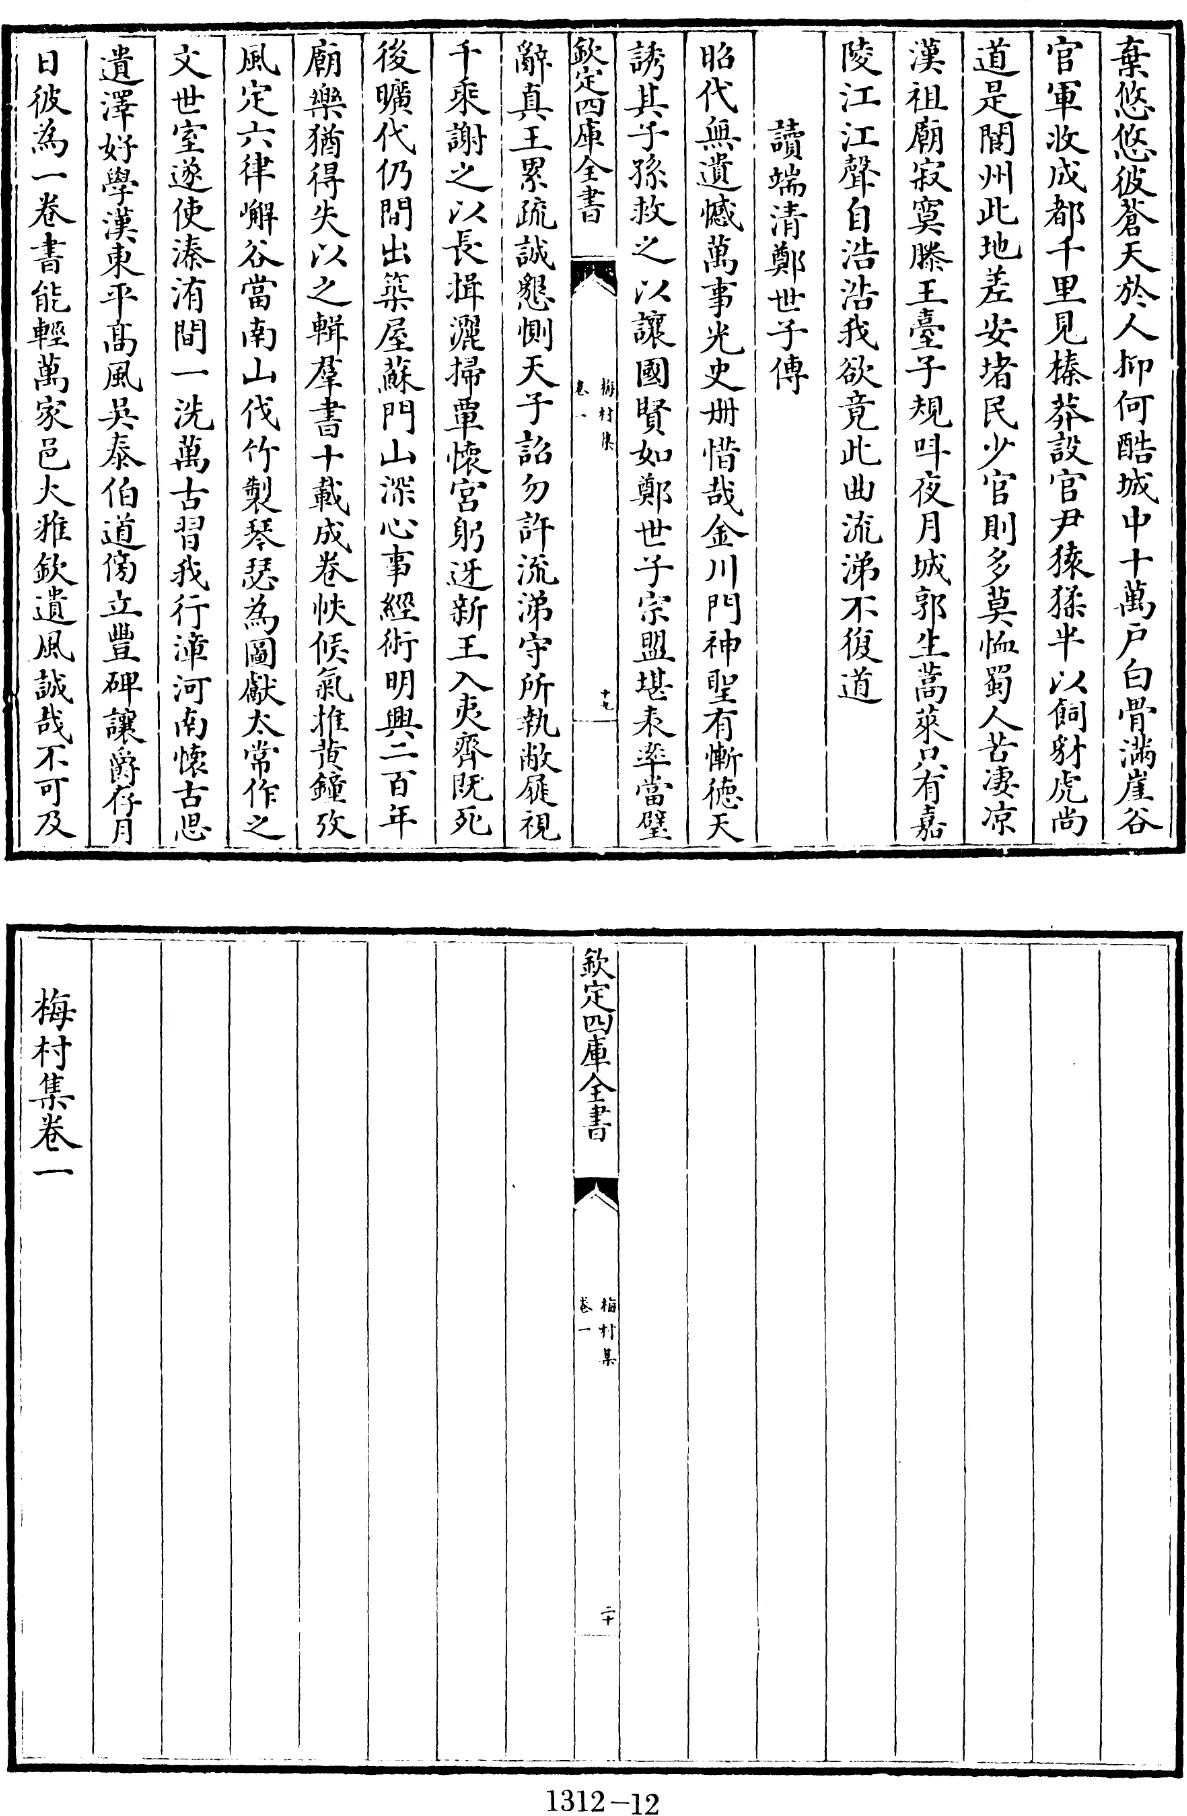 棄悠悠彼蒼天於人抑何酷城中十萬户白骨滿崖谷
官軍收成都千里見榛莽設官尹猿猱半以飼豺虎尚
道是閬州此地差安堵民少官則多莫恤蜀人苦淒凉
漢祖廟寂寞滕王臺子規呌夜月城郭生蒿萊只有嘉
陵江江聲自浩浩我欲竟此曲流涕不復道
讀端清鄭世子傳
昭代無遺憾萬事光史冊惜哉金川門神聖有慚徳天
誘其子孫救之以讓國賢如鄭世子宗盟堪表率當璧
欽定四庫全書
梅村集
卷一
十九
辭真王累疏誠懇惻天子詔勿許流涕守所執敝屣視
千乘謝之以長揖灑掃覃懷宮躬迓新王入夷齊既死
後曠代仍間出築屋蘇門山深心事經術明興二百年
廟樂猶得失以之輯羣書十載成卷帙候氣推黄鐘攷
風定六律嶰谷當南山伐竹製琴瑟為圖獻太常作之
文世室遂使溱洧間一洗萬古習我行漳河南懷古思
遺澤好學漢東平高風吳泰伯道傍立豐碑讓爵存月
日彼為一卷書能輕萬家邑大雅欽遺風誠哉不可及
欽定四庫全書
梅村集
卷一
二十
梅村集卷一
1312-12